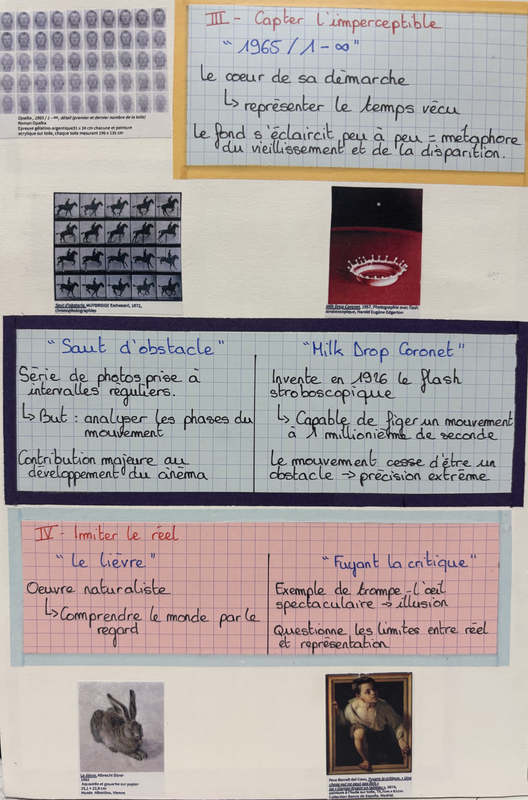 Opalka, 1965 / 1 - ∞, détail (premier et dernier nombre de la toile)
Roman Opalka
Epreuve gélatino-argentique31 x 24 cm chacune et peinture
acrylique sur toile, chaque toile mesurant 196 x 135 cm
III - Capter l'imperceptible
" 1965 / 1 - ∞ "
Le cœur de sa démarche
↳ représenter le temps vécu
Le fond s'éclaircit peu à peu = métaphore
du vieillissement et de la disparition.
Saut d'obstacle, MUYBRIDGE Eadweard, 1872,
chronophotographies
Milk Drop Coronet, 1957, Photographie avec flash
stroboscopique, Harold Eugène Edgerton
" Saut d'obstacle "
Série de photos prise à
intervalles réguliers.
↳ But : analyser les phases du
mouvement
Contribution majeure au
développement du cinéma
" Milk Drop Coronet "
Invente en 1926 le flash
stroboscopique
↳ Capable de figer un mouvement
à 1 millionième de seconde
Le mouvement cesse d'être un
obstacle → précision extrême
IV - Imiter le réel
" Le lièvre "
Oeuvre naturaliste
↳ Comprendre le monde par le
regard
" Fuyant la critique "
Exemple de trompe-l'œil
spectaculaire → illusion
Questionne les limites entre réel
et représentation
Le lièvre, Albrecht Dürer
1502
Aquarelle et gouache sur papier
25,1 x 22,6 cm
Musée Albertina, Vienne
Pere Borrell del Caso, Fuyant la critique, « Una
peinture à l'huile sur toile, 75,7cm x 61cm.
Collection Banco de España, Madrid.